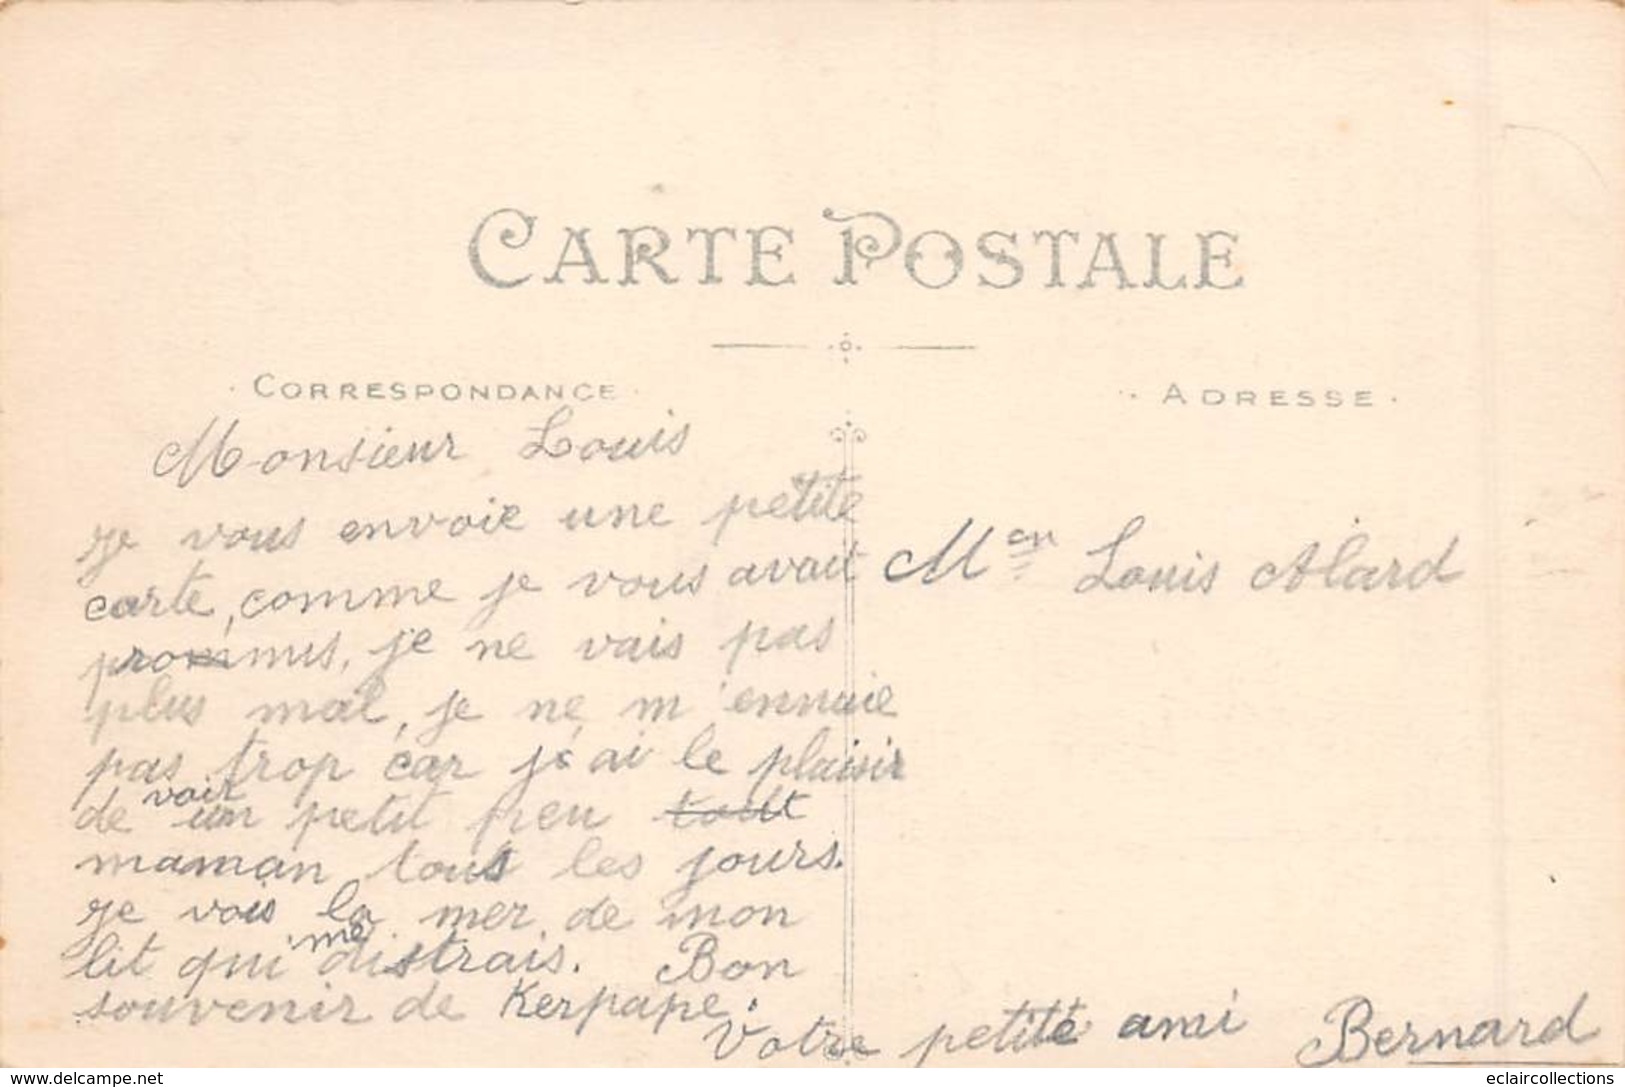 CARTE POSTALE
CORRESPONDANCE
ADRESSE
Monsieur Louis
je vous envoie une petite
carte, comme je vous avait
prommis, je ne vais pas
plus mal, je ne m'ennuie
pas trop car j'ai le plaisir
de voir un petit peu tout
maman tous les jours.
je vois la mer de mon
lit qui me distrais. Bon
souvenir de Kerpape.
Votre petite ami Bernard
Meur Louis Alard
delcampe.net
eclaircollections